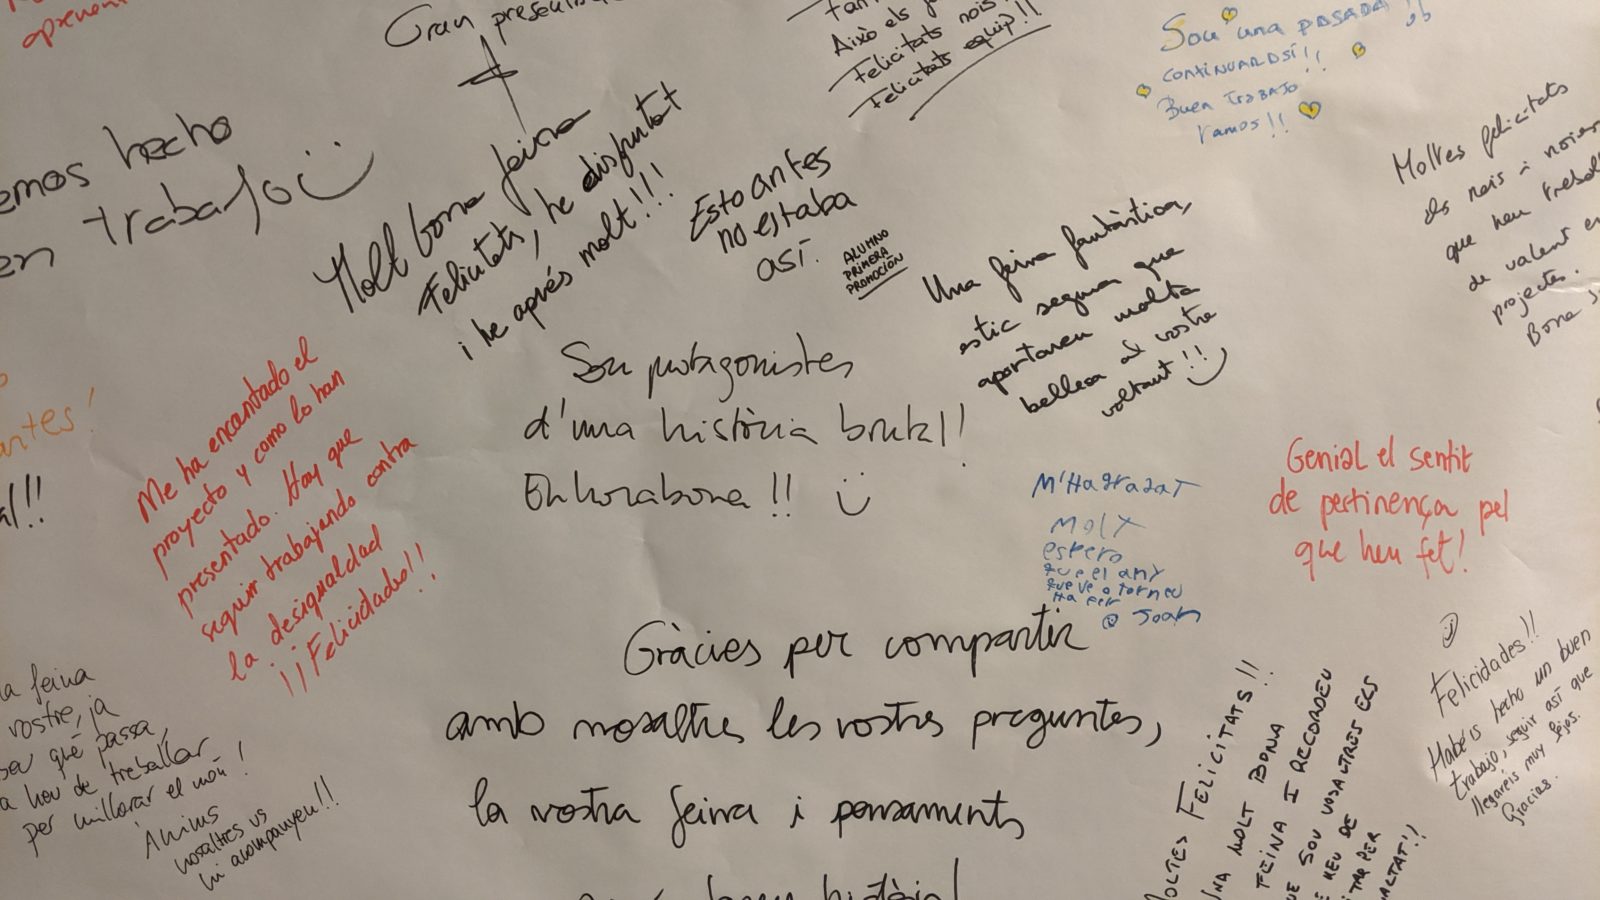 Gran
Això els
Felicitats nois
Felicitats equip!!
Sou una passada!
CONTINUAR ASÍ!!
Buen TRABAJO
vamos!!
emos hecho
en trabajo
Molt bona feina
Felicitats, he disfrutat
i he aprés molt!!!
Esto antes
no estaba
así.
ALUMNO
PRIMERA
PROMOCIÓN
Una feina fantàstica,
estic segura que
aportareu molta
bellesa al vostre
voltant!!
Moltes felicitats
als nois i noies
que heu treball
de valent en
projectes.
Bona
Sou protagonistes
d'una història brutal!
Enhorabona!!
antes!
al!!
Me ha encantado el
proyecto y como lo han
presentado. Hay que
seguir trabajando contra
la desigualdad
¡¡Felicidades!!
M'HA agradat
MOLT
espero
que el any
que ve o torneu
Ha fer
Joan
Genial el sentit
de pertinença pel
que heu fet!
Gràcies per compartir
amb nosaltres les vostres preguntes,
la vostra feina i pensaments
la feina
vostre, ja
que passa,
a hou de treballar
per millorar el món!
Ànims
nosaltres us
hi acompanyem!!
MOLTES FELICITATS!!
UNA MOLT BONA
FEINA I RECORDEU
QUE SOU VOSALTRES ELS
HEU DE
Felicidades!!
Habéis hecho un buen
trabajo, seguir así que
llegaréis muy lejos.
Gracias.